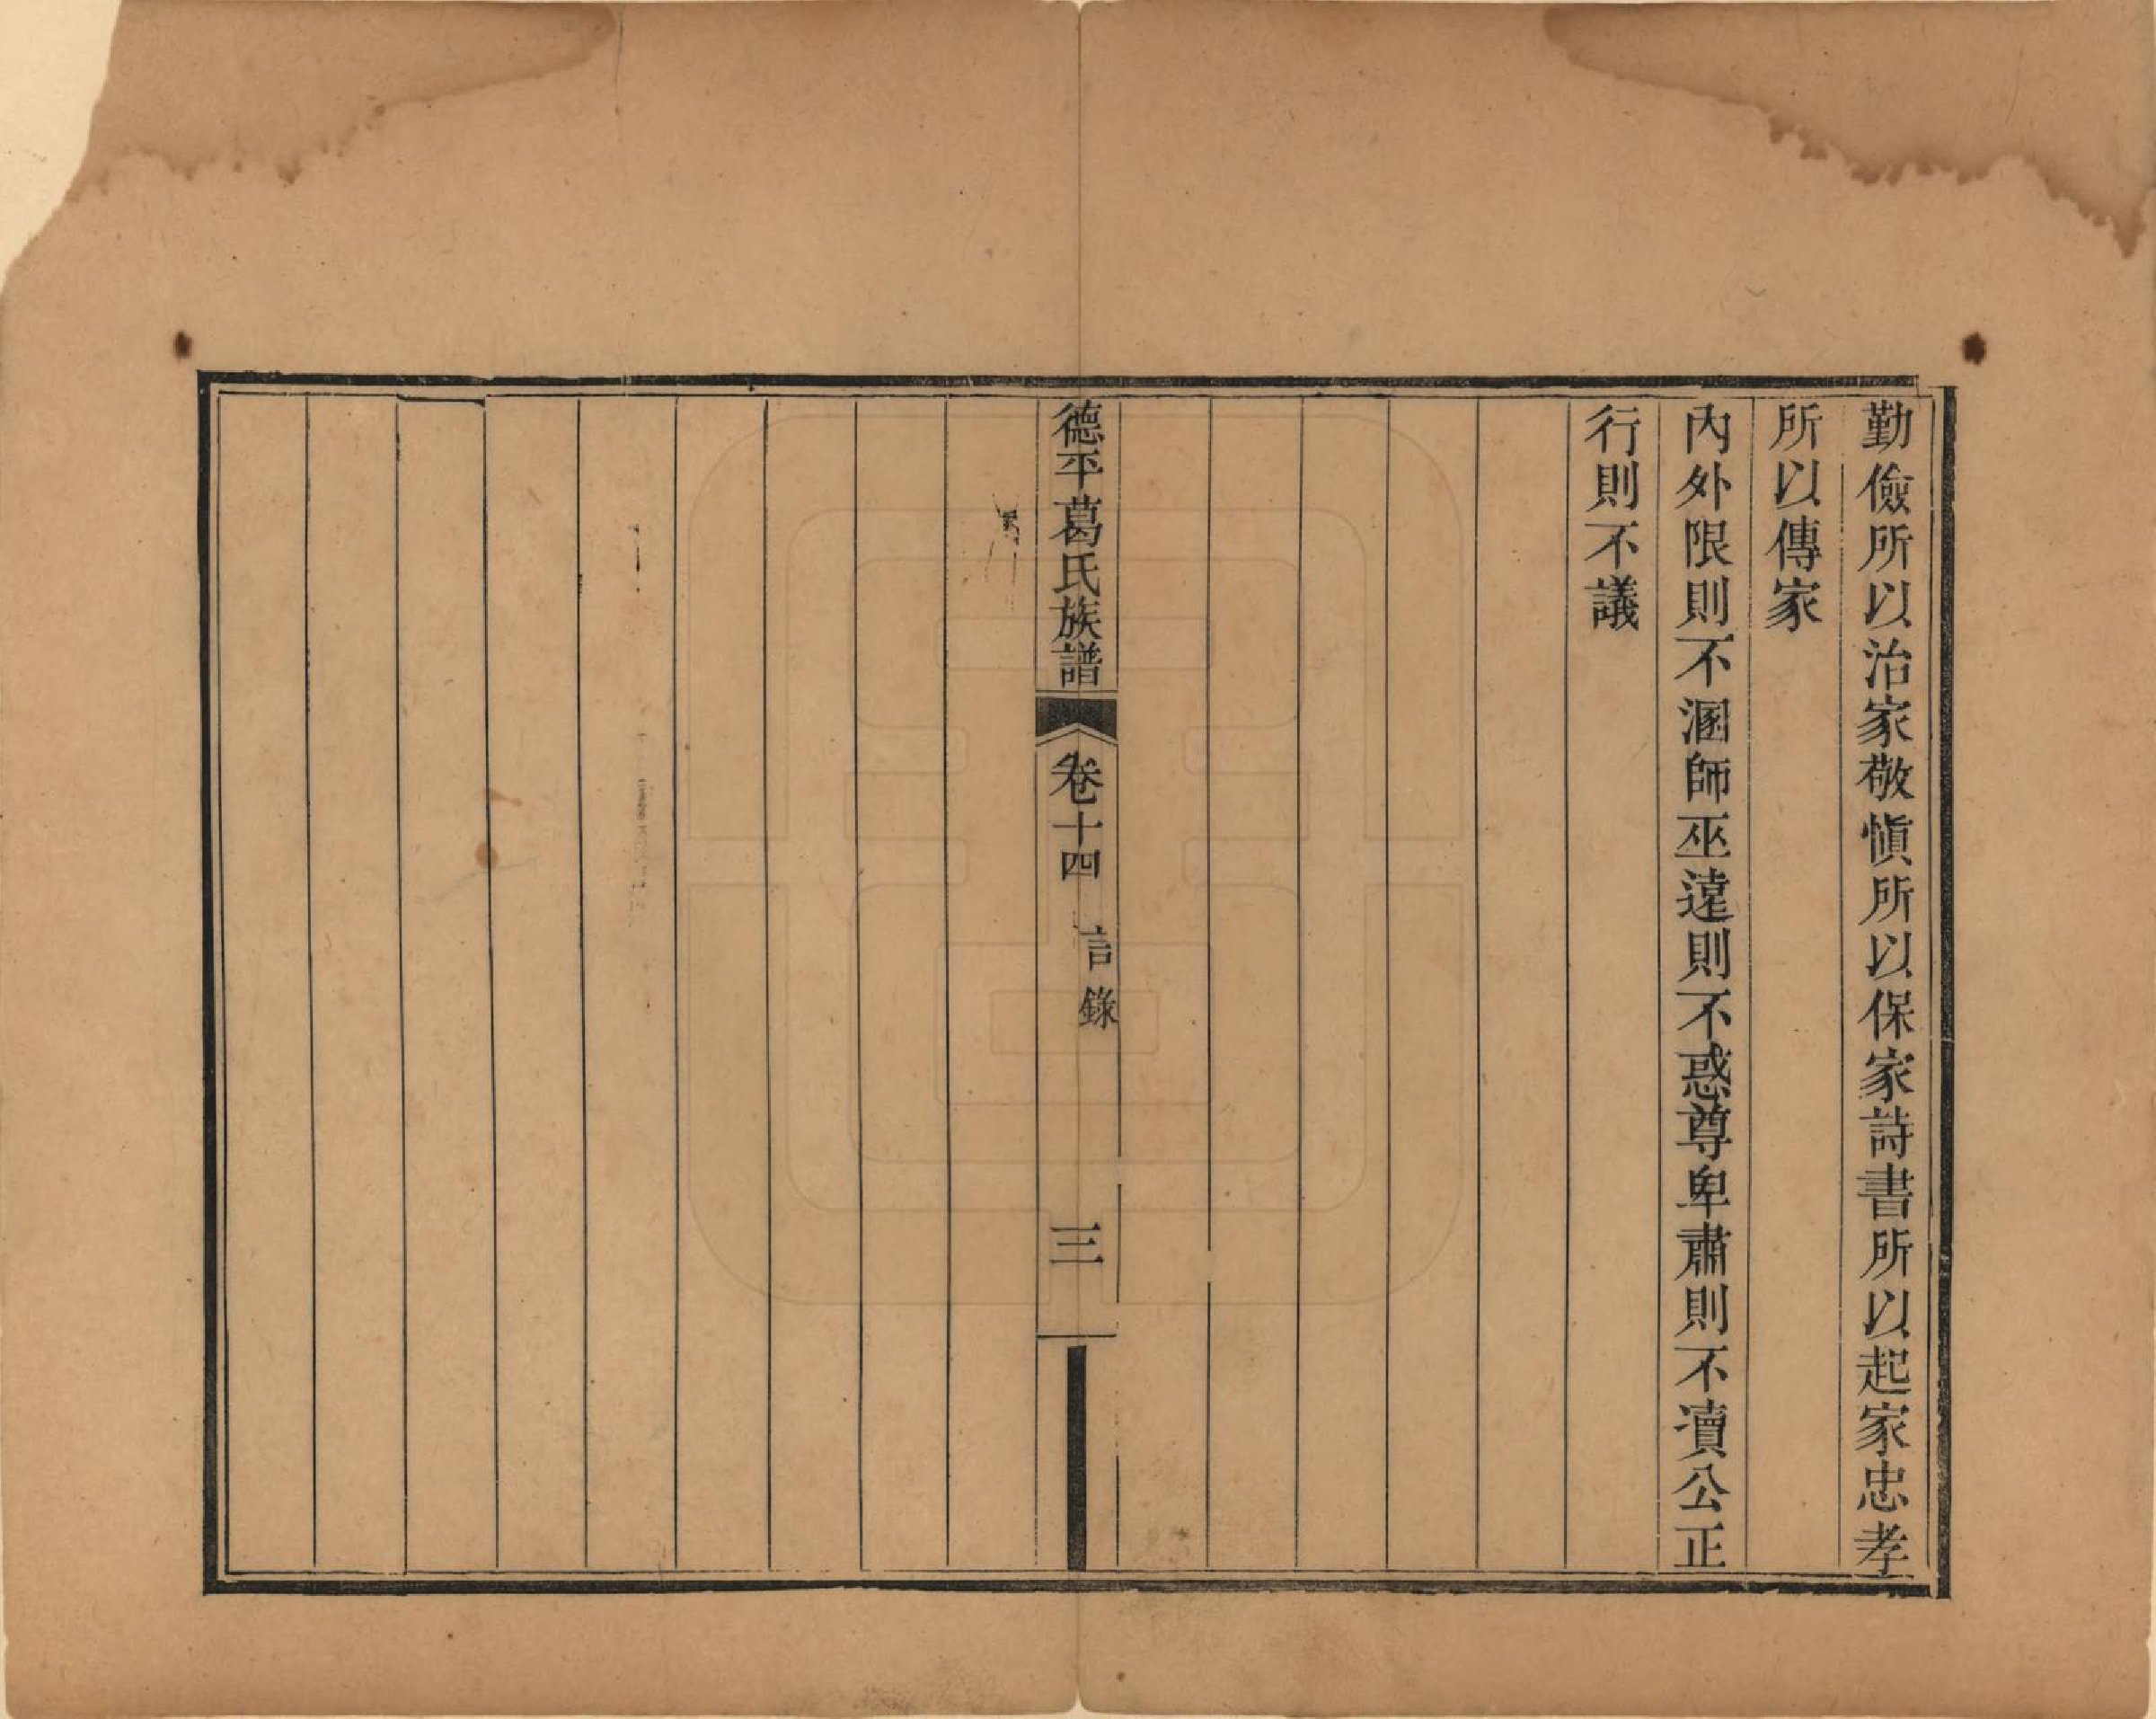 勤儉所以治家敬慎所以保家詩書所以起家忠孝
所以傳家
內外限則不溷師巫遠則不惑尊卑肅則不瀆公正
行則不議
德平葛氏族譜 卷十四 言錄 三